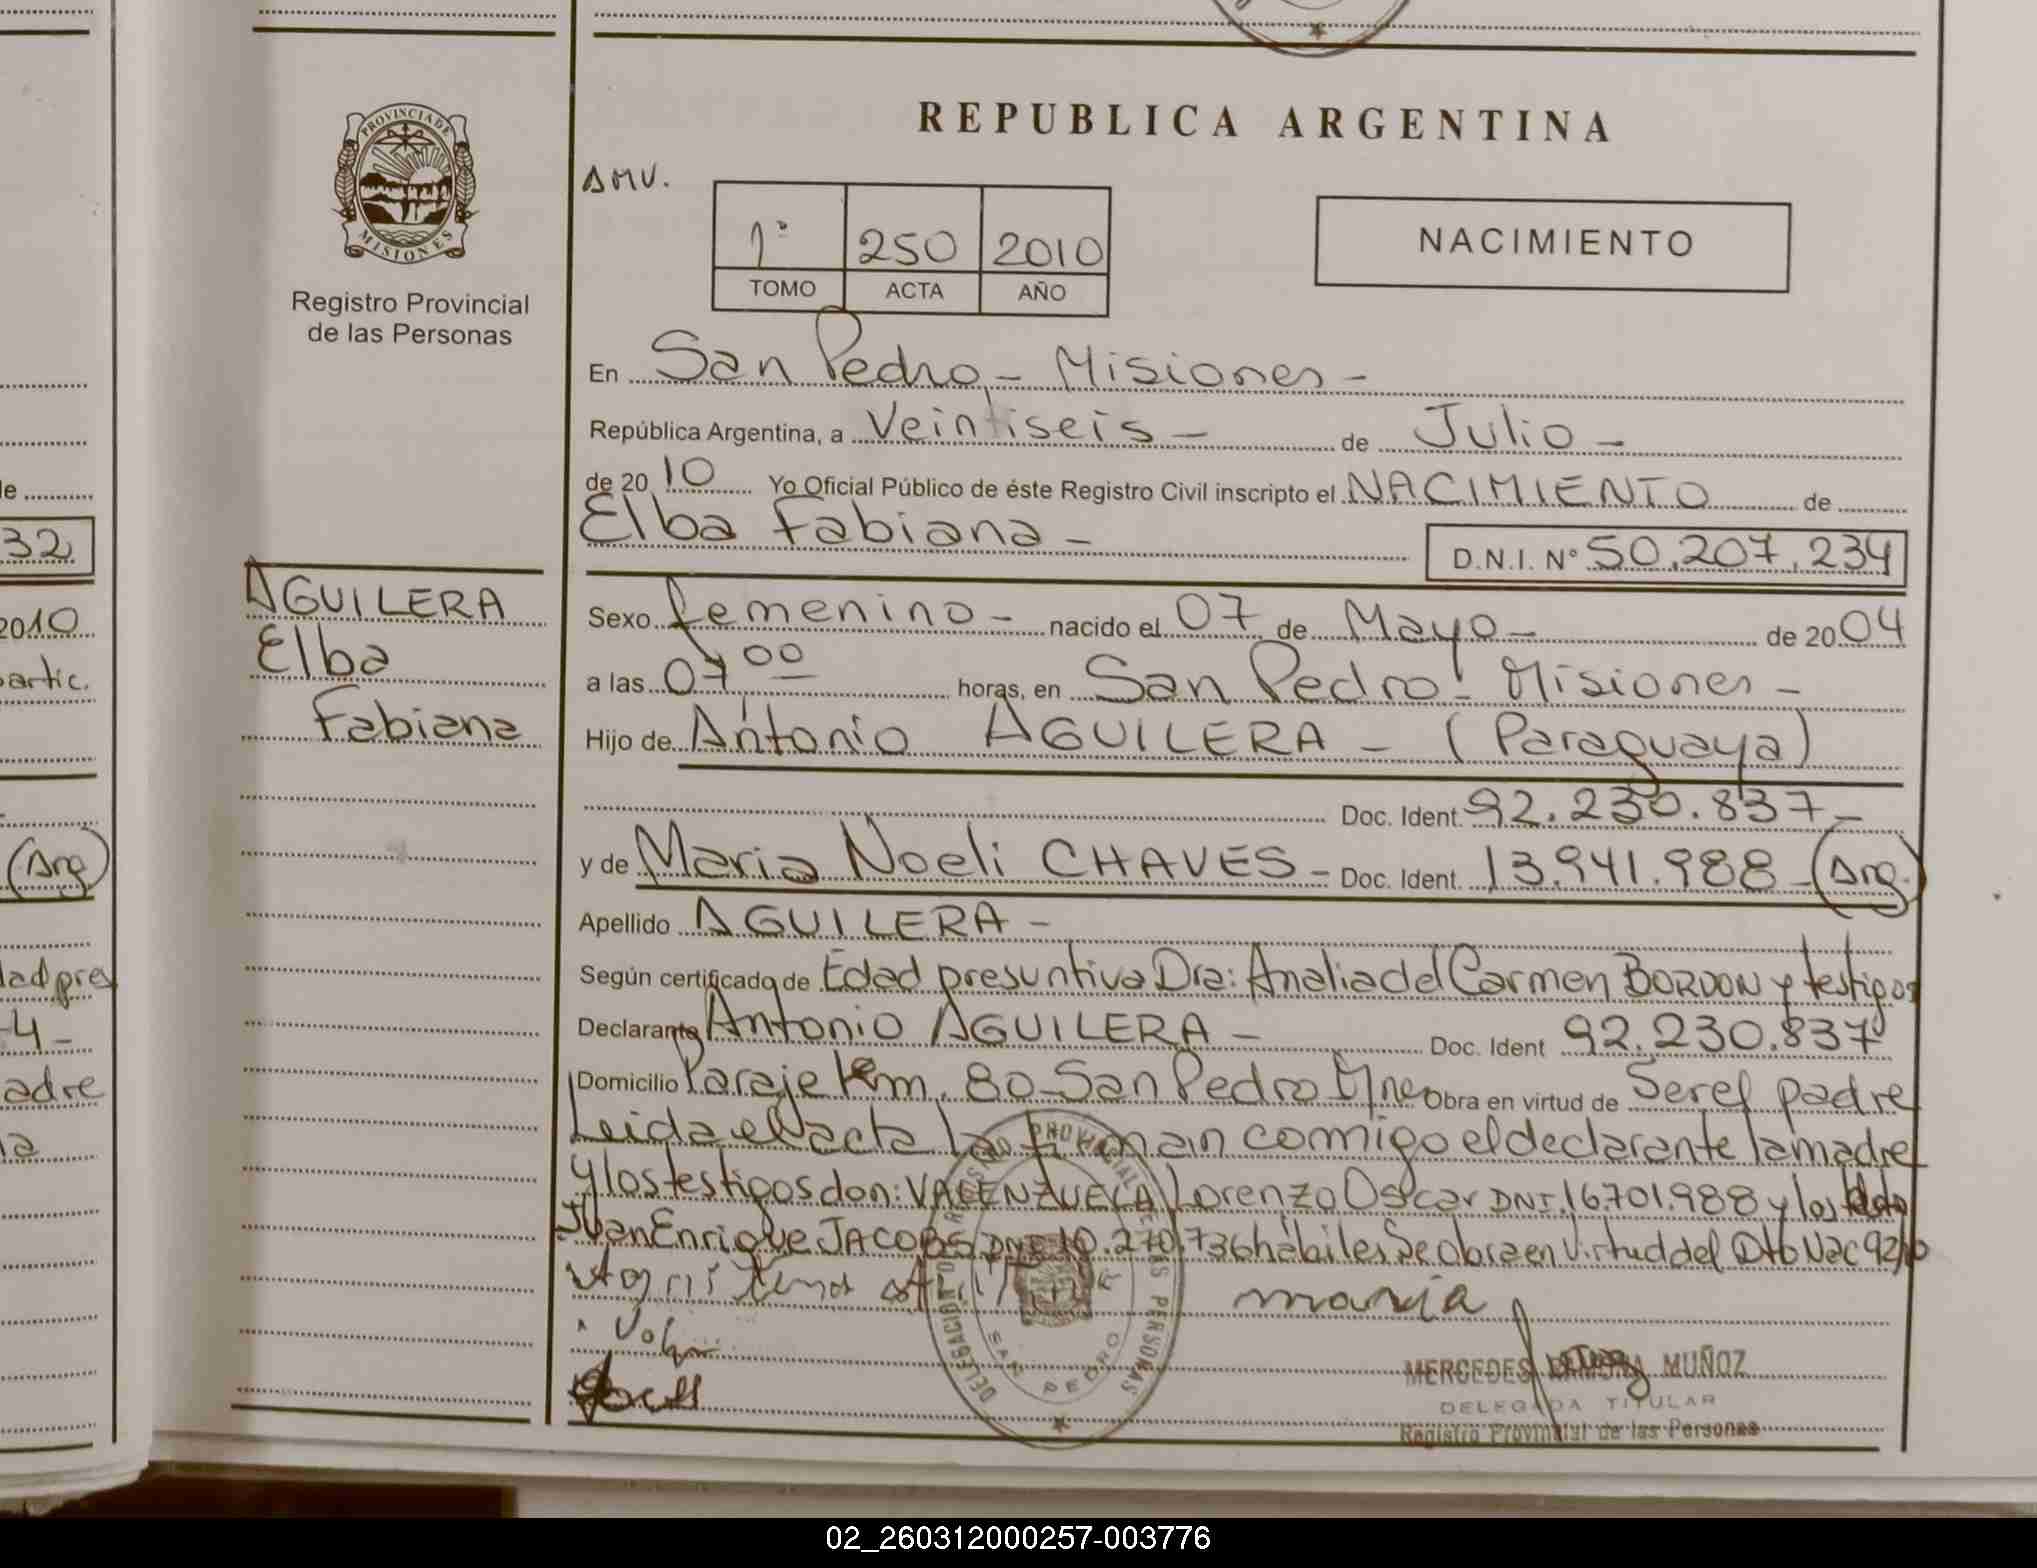 REPUBLICA ARGENTINA
PROVINCIA DE
MISIONES
Registro Provincial
de las Personas
AMV.
1º 250 2010
TOMO ACTA AÑO
NACIMIENTO
En San Pedro - Misiones -
República Argentina, a Veintiseis - de Julio -
de 2010 Yo Oficial Público de éste Registro Civil inscripto el NACIMIENTO de
Elba Fabiana -
D.N.I. Nº 50.207.234
AGUILERA
Elba
Fabiana
Sexo femenino - nacido el 07 de Mayo - de 2004
a las 07 00 horas, en San Pedro - Misiones -
Hijo de Antonio AGUILERA - (Paraguaya)
Doc. Ident. 92.230.837 -
y de Maria Noeli CHAVES - Doc. Ident. 13.941.988 - (Arg.)
Apellido AGUILERA -
Según certificado de Edad presuntiva Dra: Analia del Carmen BORDON y testigos
Declarante Antonio AGUILERA - Doc. Ident 92.230.837
Domicilio Paraje Km. 80 - San Pedro Mnes Obra en virtud de Ser el padre
Leida el acta la firman conmigo el declarante la madre
y los testigos don: VALENZUELA Lorenzo Oscar DNI. 16.701.988 y
Juan Enrique JACOBS DNI 10.270.736 habiles Se obra en Virtud del Dto Nac 92/10
maria
MERCEDES RAMONA MUÑOZ
DELEGADA TITULAR
Registro Provincial de las Personas
DELEGACION REGISTRO PROVINCIAL DE LAS PERSONAS
SAN PEDRO
32
2010
partic.
(Arg)
4 -
02_260312000257-003776